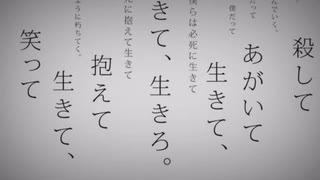 殺して
んでいく、
だって
あがいて
僕だって
生きて、
僕らは必死に生きて
きて、生きろ。
死に抱えて生きて
抱えて
ように朽ちてく。
生きて、
笑って